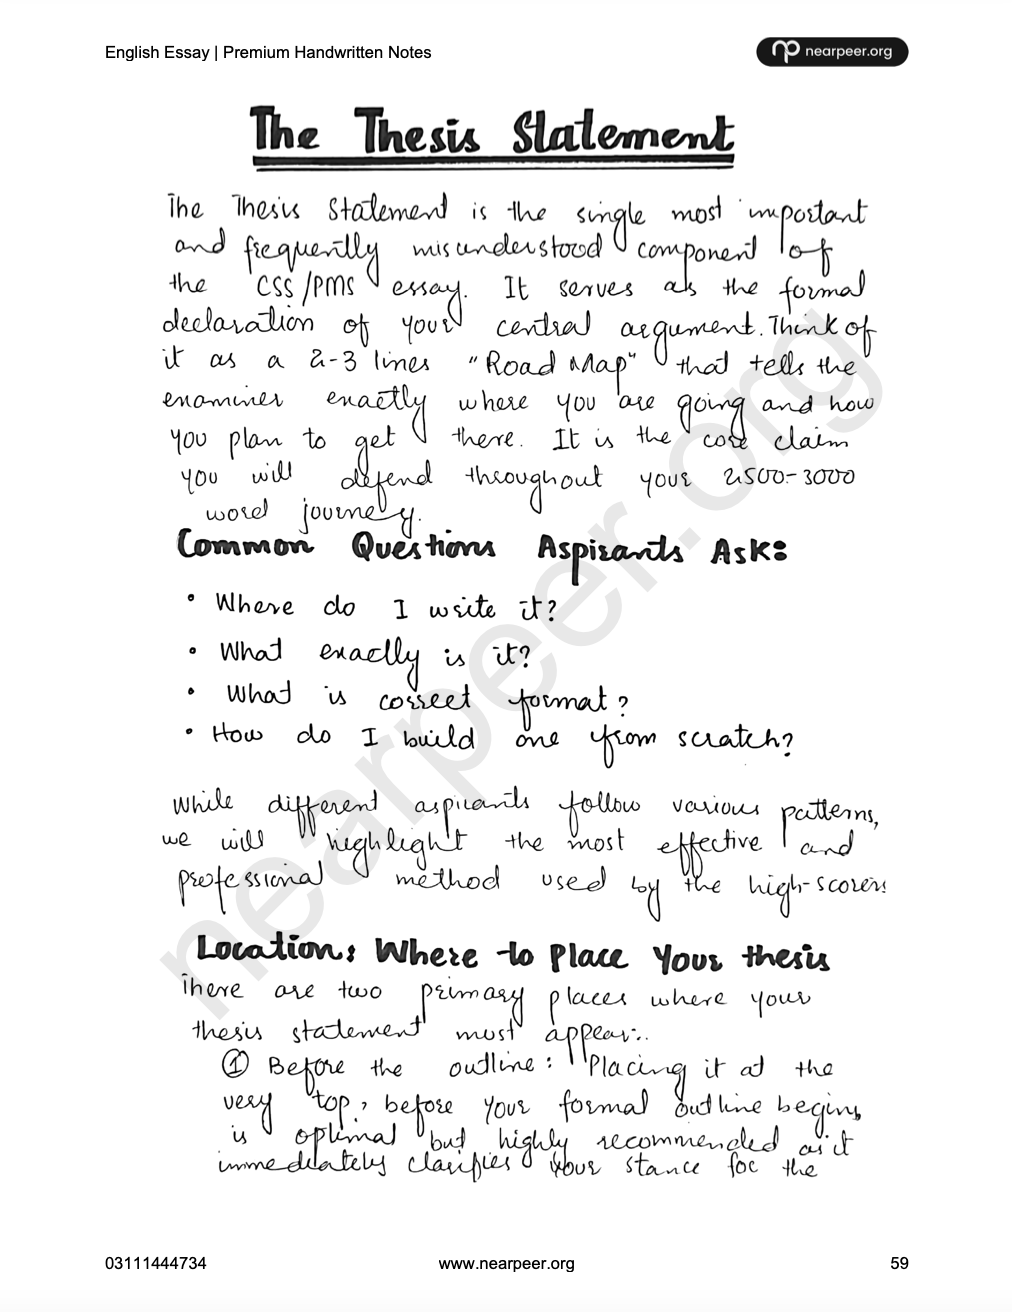 English Essay | Premium Handwritten Notes
nearpeer.org
The Thesis Statement
The Thesis Statement is the single most important
and frequently misunderstood component of
the CSS/PMS essay. It serves as the formal
declaration of your central argument. Think of
it as a 2-3 lines "Road Map" that tells the
examiner exactly where you are going and how
you plan to get there. It is the core claim
you will defend throughout your 2500-3000
word journey.
Common Questions Aspirants Ask:
• Where do I write it?
• What exactly is it?
• What is correct format?
• How do I build one from scratch?
While different aspirants follow various patterns,
we will highlight the most effective and
professional method used by the high-scorers
Location: Where to Place Your thesis
There are two primary places where your
thesis statement must appear:.
① Before the outline: Placing it at the
very top, before your formal outline begins,
is optimal but highly recommended as it
immediately clarifies your stance for the
nearpeer.org
03111444734
www.nearpeer.org
59